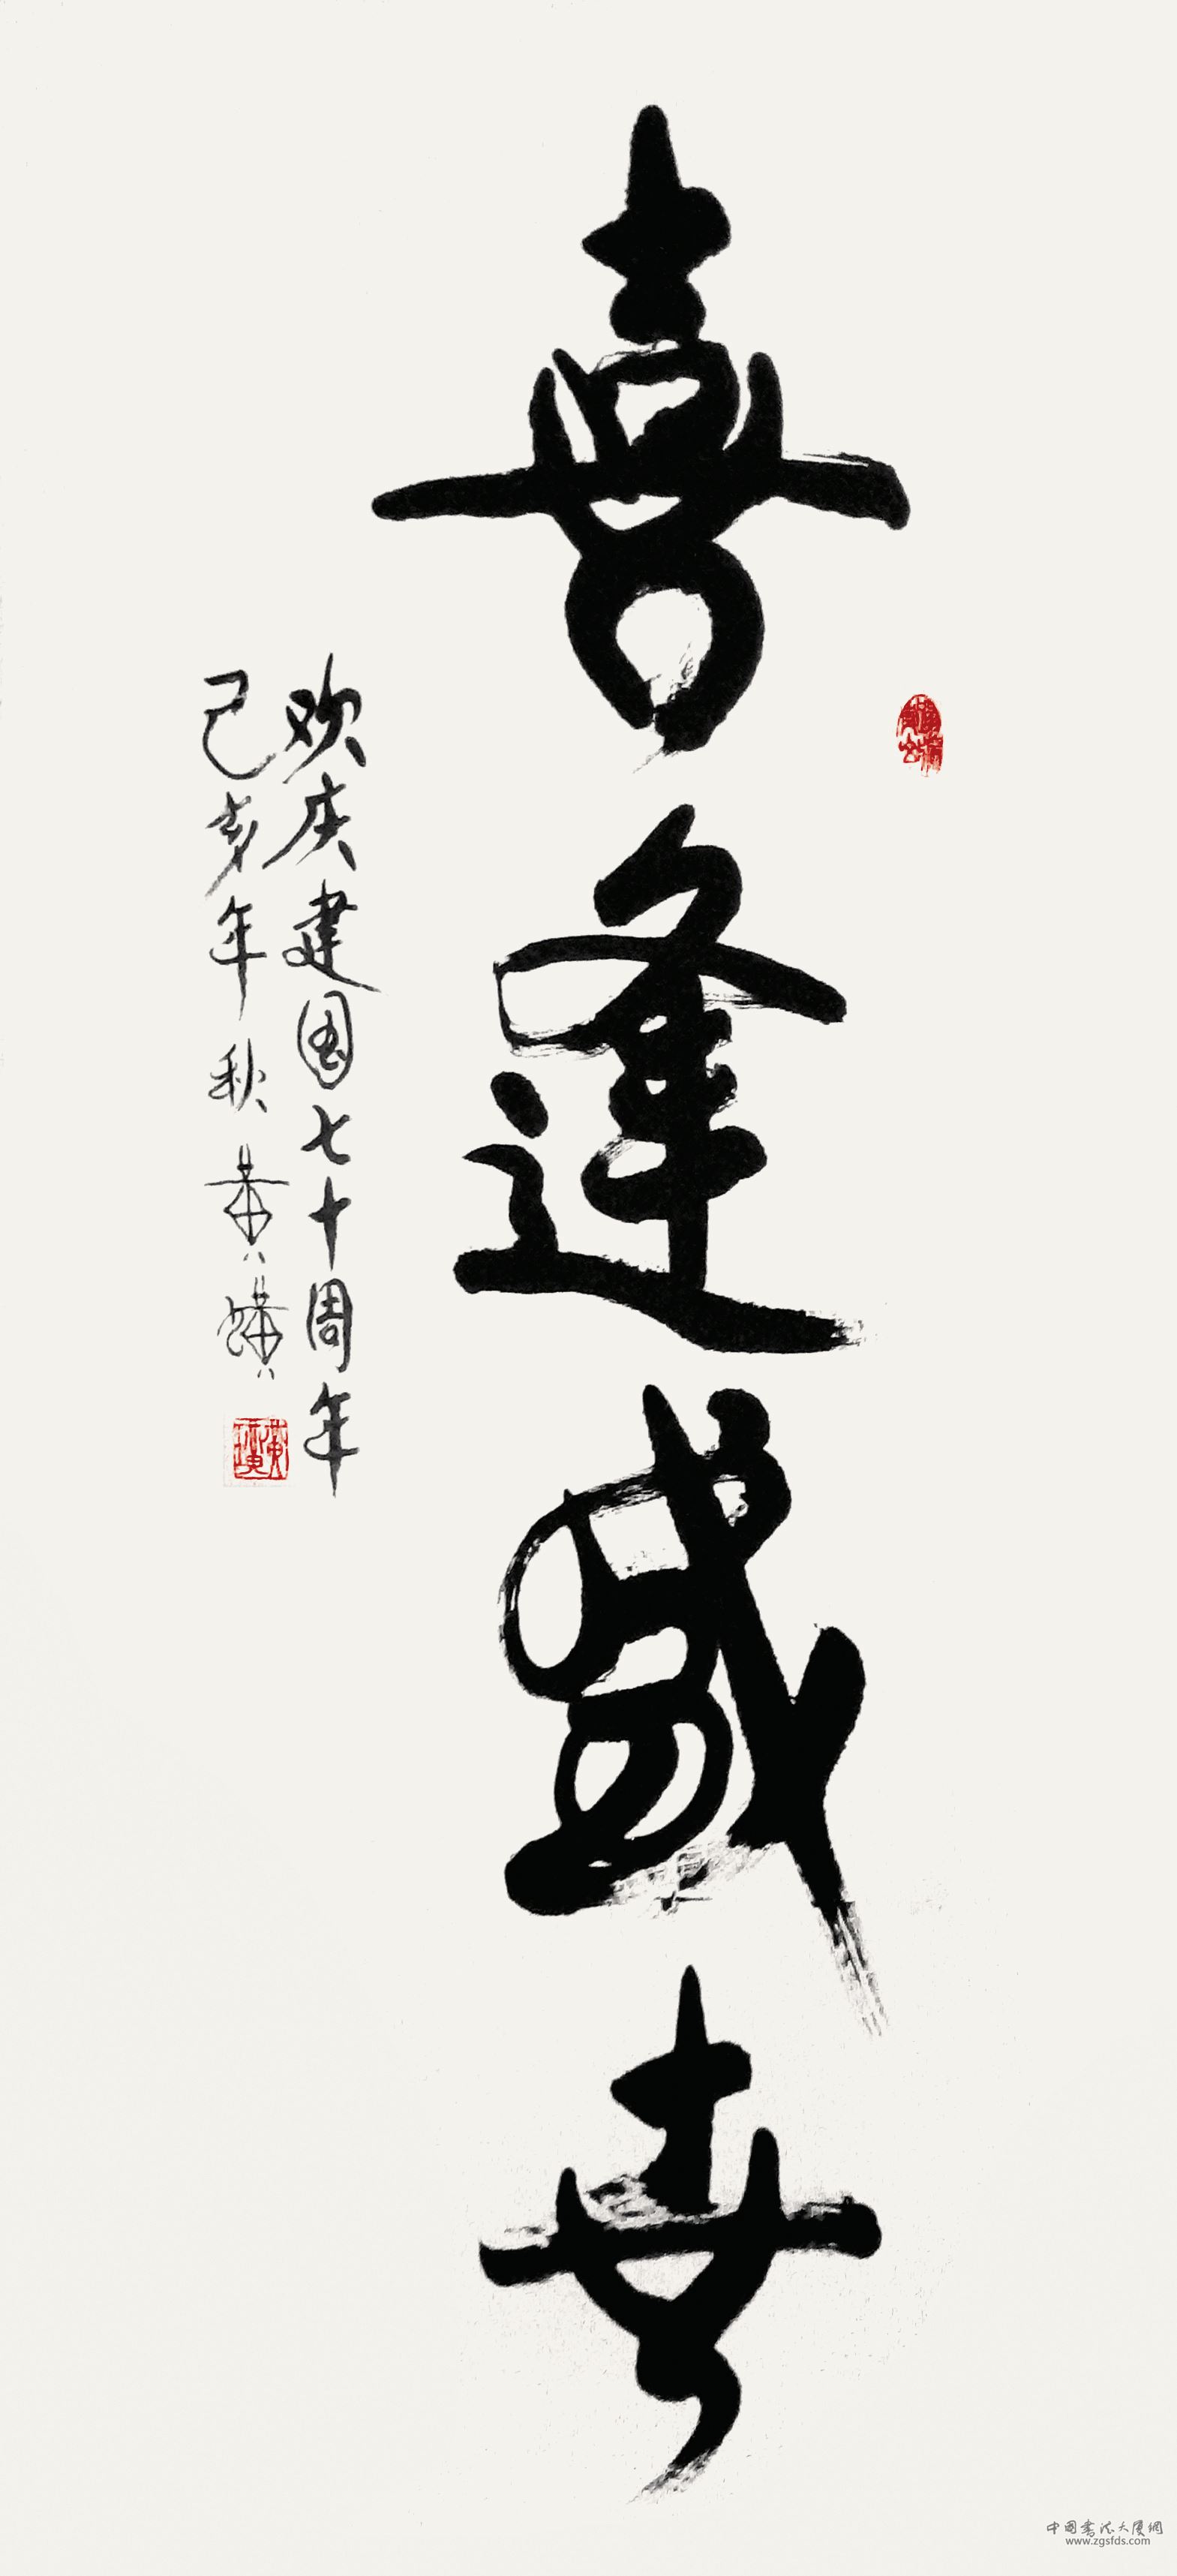 喜逢盛世
欢庆建国七十周年
己亥年秋 黄璜
黄璜
中国書法大厦網
www.zgsfds.com